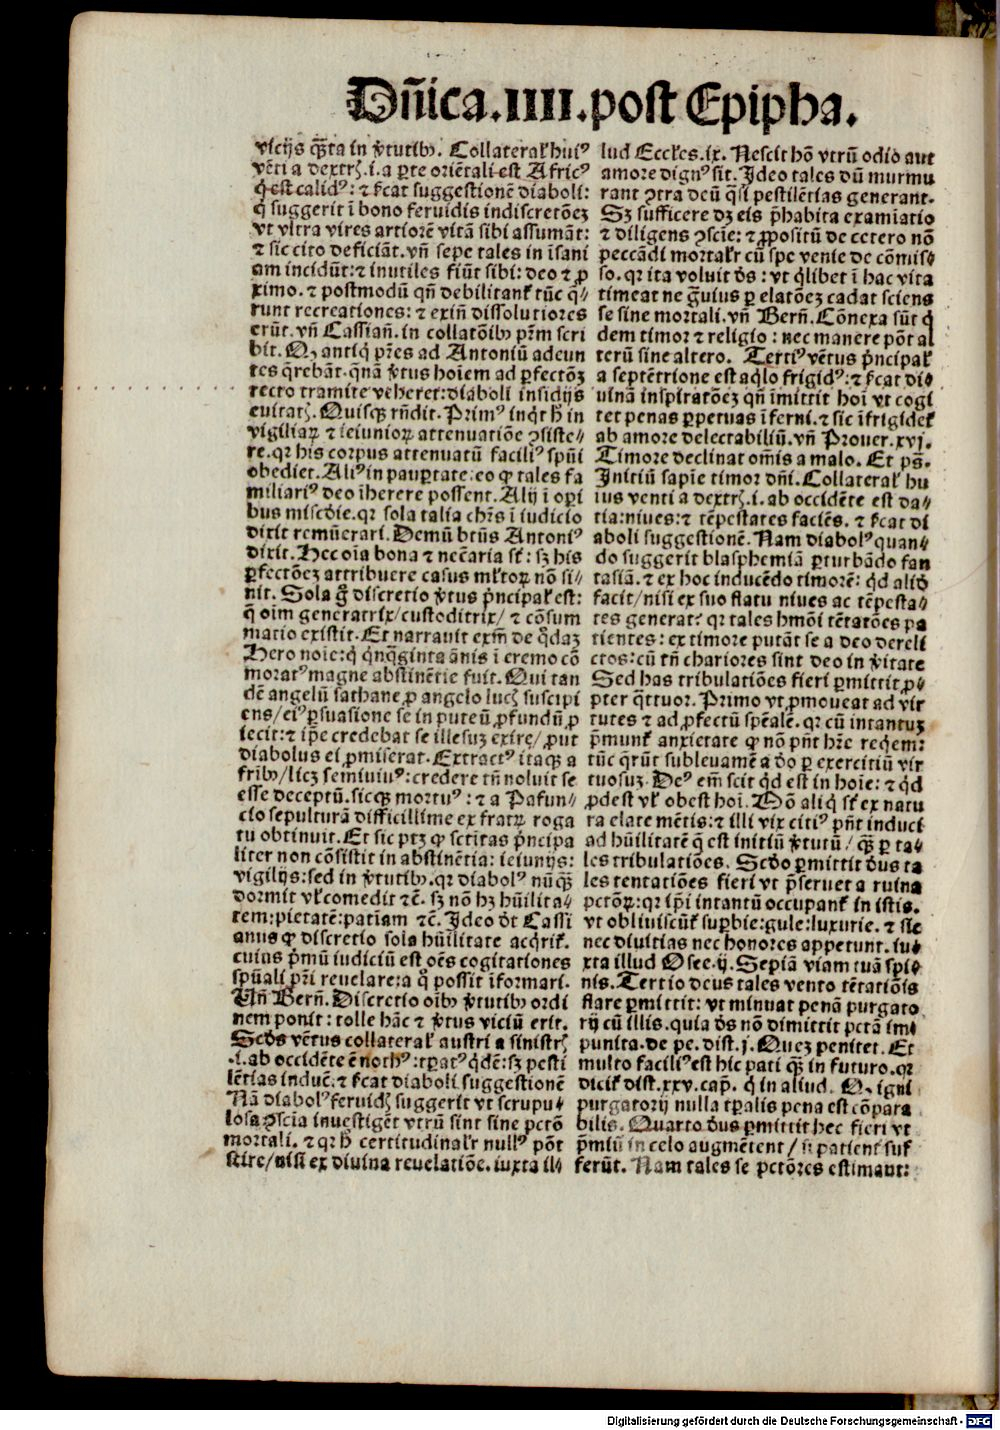 Dñica.IIII.post Epipha.
vicijs qꝫ̃ta in v̾tutibꝰ. Collateral̓ huiꝰ
vẽti a dextrꝭ.i.a ꝑte oriẽtali est Africꝰ
q̃ est calidꝰ: ⁊ s̓cat suggestionẽ diaboli:
q̓ suggerit ĩ bono feruidis indiscretõeꝫ
vt vltra vires artiorẽ vitã sibi assumãt:
⁊ sic cito deficiãt. vñ sepe tales in ĩsani
am incidũt: ⁊ inutiles fiũt sibi: deo ⁊ ꝓ
ximo. ⁊ postmodũ qñ debilitant̓ tũc q̃⸗
runt recreationes: ⁊ exiñ dissolutiores
erũt. vñ Cassiañ. in collatõibꝰ pr̃m scri
bit. Qꝫ antiq̓ pr̃es ad Antoniũ adeun
tes q̃rebãt. q̃nã v̾tus hoĩem ad ꝑfectõꝫ
recto tramite veheret: diaboli insidijs
euitatꝭ. Quisqꝫ rñdit. Primꝰ inq̓t h̓ in
vigiliaꝝ ⁊ ieiunioꝝ attenuatiõe ꝯsiste⸗
re. qꝛ his corpus attenuatũ faciliꝰ spũi
obediet. Aliꝰ in pauꝑtate: eo ꝙ tales fa
miliariꝰ deo ĩherere possent. Alij ĩ oꝑi
bus misc̓die. qꝛ sola talia chr̃s ĩ iudicio
dixit remũerari. Demũ btũs Antoniꝰ
dixit. Hec oĩa bona ⁊ necc̃aria st̓: sꝫ his
ꝑfectõeꝫ attribuere casus ml̓toꝝ nõ si⸗
nit. Sola g̃ discretio v̾tus p̃ncipal̓ est:
q̃ oĩm generatrix/ custoditrix/ ⁊ cõsum
matio existit. Et narrauit exm̃ de q̓daꝫ
Hero noĩe: q̓ q̃nq̃ginta ãnis ĩ eremo cõ
moratꝰ magne abstinẽtie fuit. Qui tan
dẽ angelũ sathane ꝓ angelo lucꝭ suscipi
ens/ eiꝰ ꝑsuasione se in puteũ ꝓfundũ ꝓ
iecit: ⁊ ip̃e credebat se illesuꝫ exire/ ꝓut
diabolus ei ꝓmiserat. Extractꝰ itaqꝫ a
fr̃ibꝰ/ licꝫ semiuiuꝰ: credere tñ noluit se
esse deceptũ. sicqꝫ mortuꝰ: ⁊ a Pafun⸗
cio sepulturã difficillime ex fratꝝ roga
tu obtinuit. Et sic ptꝫ ꝙ sctitas p̃ncipa
liter non cõsistit in abstinẽtia: ieiunijs:
vigilijs: sed in v̾tutibꝰ. qꝛ diabolꝰ nũqꝫ̃
dormit vl̓ comedit ⁊c̃. sꝫ nõ hꝫ hũilita⸗
tem: pietatẽ: patĩam ⁊c̃. Ideo d̓t Cassi
anus ꝙ discretio sola hũilitate acq̓rit̓.
cuius p̃mũ iudiciũ est oẽs cogitationes
spũali pr̃i reuelare: a q̓ possit ĩformari.
Vñ Berñ. Discretio oĩbꝰ v̾tutibꝰ ordi
nem ponit: tolle hãc ⁊ v̾tus viciũ erit.
Scd̓s vẽtus collateral̓ austri a sinistrꝭ
.i. ab occidẽte ẽ nothꝰ: tꝑatꝰ q̓dẽ: sꝫ pesti
lẽtias inducẽs. ⁊ s̓cat diaboli suggestionẽ
Nã diabolꝰ feruidꝭ suggerit vt scrupu⸗
losa ꝯscĩa inuestigẽt vtrũ sint sine pctõ
mortali. ⁊ qꝛ h̓ certitudinal̓r nullꝰ põt
scire/ nisi ex diuina reuelatiõe. iuxta il⸗
lud Eccles.ix. Nescit hõ vtrũ odio aut
amore dignꝰ sit. Ideo tales dũ murmu
rant ꝯtra deũ q̃si pestilẽtias generant.
Sꝫ sufficere dꝫ eis p̃habita examiatio
⁊ diligens ꝯscĩe: ⁊ ꝓpositũ de cetero nõ
peccãdi mortal̓r cũ spe venie de cõmis⸗
so. qꝛ ita voluit d̓s: vt q̓libet ĩ hac vita
timeat ne g̃uius ꝑ elatõeꝫ cadat sciens
se sine mortali. vñ Berñ. Cõnexa sũt q̓
dem timor ⁊ religio: nec manere põt al
terũ sine altero. Tertiꝰ vẽtus p̃ncipal̓
a septẽtrione est aq̓lo frigidꝰ: ⁊ s̓cat di⸗
uinã inspiratõeꝫ qñ ĩmittit hoĩ vt cogi
tet penas ꝑpetuas ĩferni. ⁊ sic ĩfrigidet̓
ab amore delectabiliũ. vñ Prouer.xvj.
Timore declinat om̃is a malo. Et ps̃.
Initiũ sapĩe timor dñi. Collateral̓ hu
ius venti a dextrꝭ.i. ab occidẽte est da⸗
tia: niues: ⁊ tẽpestates faciẽs. ⁊ s̓cat di
aboli suggestionẽ. Nam diabolꝰ quan⸗
do suggerit blasphemiã ꝑturbãdo fan
tasiã. ⁊ ex hoc inducẽdo timorẽ: q̓d aliud
facit/ nisi ex suo flatu niues ac tẽpesta⸗
tes generat? qꝛ tales hm̃õi tẽtatões pa
tientes: ex timore putãt se a deo dereli
ctos: cũ tñ chariores sint deo in v̾itate
Sed has tribulatiões fieri ꝑmittit ꝓ⸗
pter q̃ttuor. Primo vt ꝓmoueat ad vir
tutes ⁊ ad ꝓfectũ spẽalẽ. qꝛ cũ intantuꝫ
p̃munt̓ anxietate ꝙ nõ pñt hr̃e req̓em:
tũc q̃rũt subleuamẽ a d̓o ꝑ exercitiũ vir
tuosuꝫ. Deꝰ em̃ scit q̓d est in hoĩe: ⁊ q̓d
ꝓdest vl̓ obest hoĩ. Hõ aliq̓ st̓ ex natu
ra elate mẽtis: ⁊ illi vix citiꝰ pñt induci
ad hũilitatẽ q̃ est initiũ v̾tutũ/ qꝫ̃ ꝑ ta⸗
les tribulatiões. Scd̓o ꝑmittit d̓us ta
les tentatiões fieri vt p̃seruet a ruina
pctõꝝ: qꝛ ip̃i intantũ occupant̓ in istis.
vt obliuiscũt̓ suꝑbie: gule: luxurie. ⁊ sic
nec diuitias nec honores appetunt. iu⸗
xta illud Osee.ij. Sepiã viam tuã spi⸗
nis. Tertio deus tales vento tẽtatiõis
flare ꝑmittit: vt minuat penã purgato
rij cũ illis. quia d̓s nõ dimittit pctã im⸗
punita. de pe. dist.j. Quez penitet. Et
multo faciliꝰ est hic pati qꝫ̃ in futuro. qꝛ
dicit̓ dist.xxv. cap. q̓ in aliud. Qꝫ igni
purgatorij nulla tꝑalis pena est cõpara
bilis. Quarto d̓us ꝑmittit hec fieri vt
p̃miũ in celo augmẽtent/ si patient̓ suf
ferũt. Nam tales se pctões estimant:
Digitalisierung gefördert durch die Deutsche Forschungsgemeinschaft - DFG